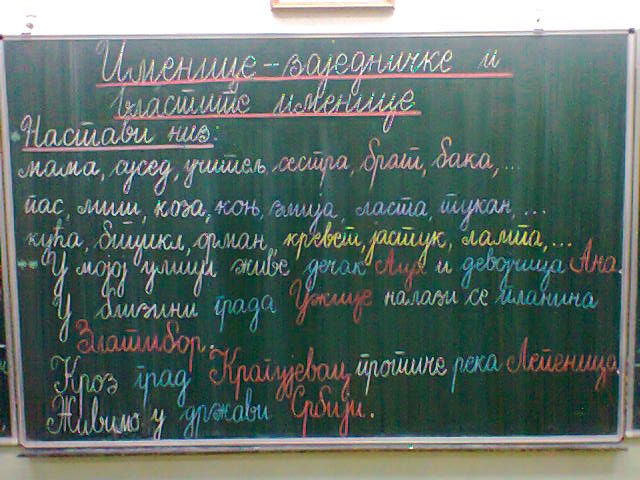 Именице - заједничке и
властите именице
Настави низ:
мама, сусед, учитељ, сестра, брат, бака, ...
пас, миш, коза, коњ, змија, ласта, тукан, ...
кућа, бицикл, орман, кревет, јастук, лампа, ...
У мојој улици живе дечак и девојчица Ана.
У близини града Ужице налази се планина
Златибор.
Кроз град Крагујевац протиче река Лепеница.
Живимо у држави Србији.